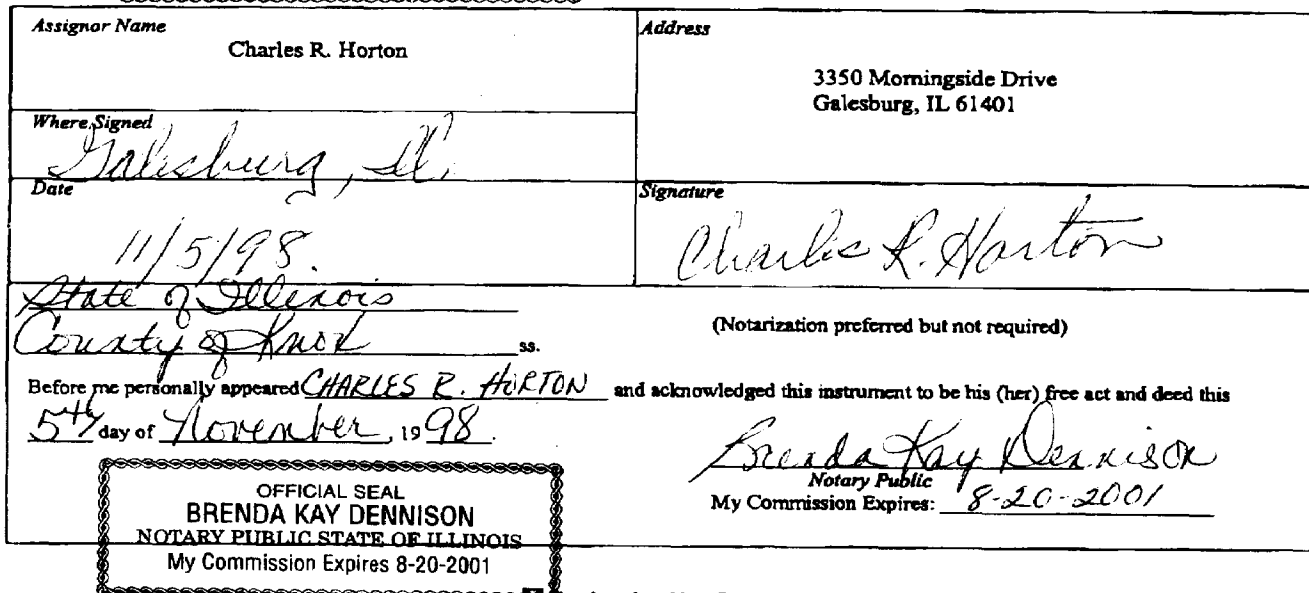 Assignor Name
Charles R. Horton
Address
3350 Morningside Drive
Galesburg, IL 61401
Where Signed
Galesburg, Il.
Date
11/5/98.
Signature
Charles R. Horton
State of Illinois
County of Knox ss.
(Notarization preferred but not required)
Before me personally appeared CHARLES R. HORTON and acknowledged this instrument to be his (her) free act and deed this
5th day of November, 19 98.
Brenda Kay Dennison
Notary Public
My Commission Expires: 8-20-2001
OFFICIAL SEAL
BRENDA KAY DENNISON
NOTARY PUBLIC STATE OF ILLINOIS
My Commission Expires 8-20-2001